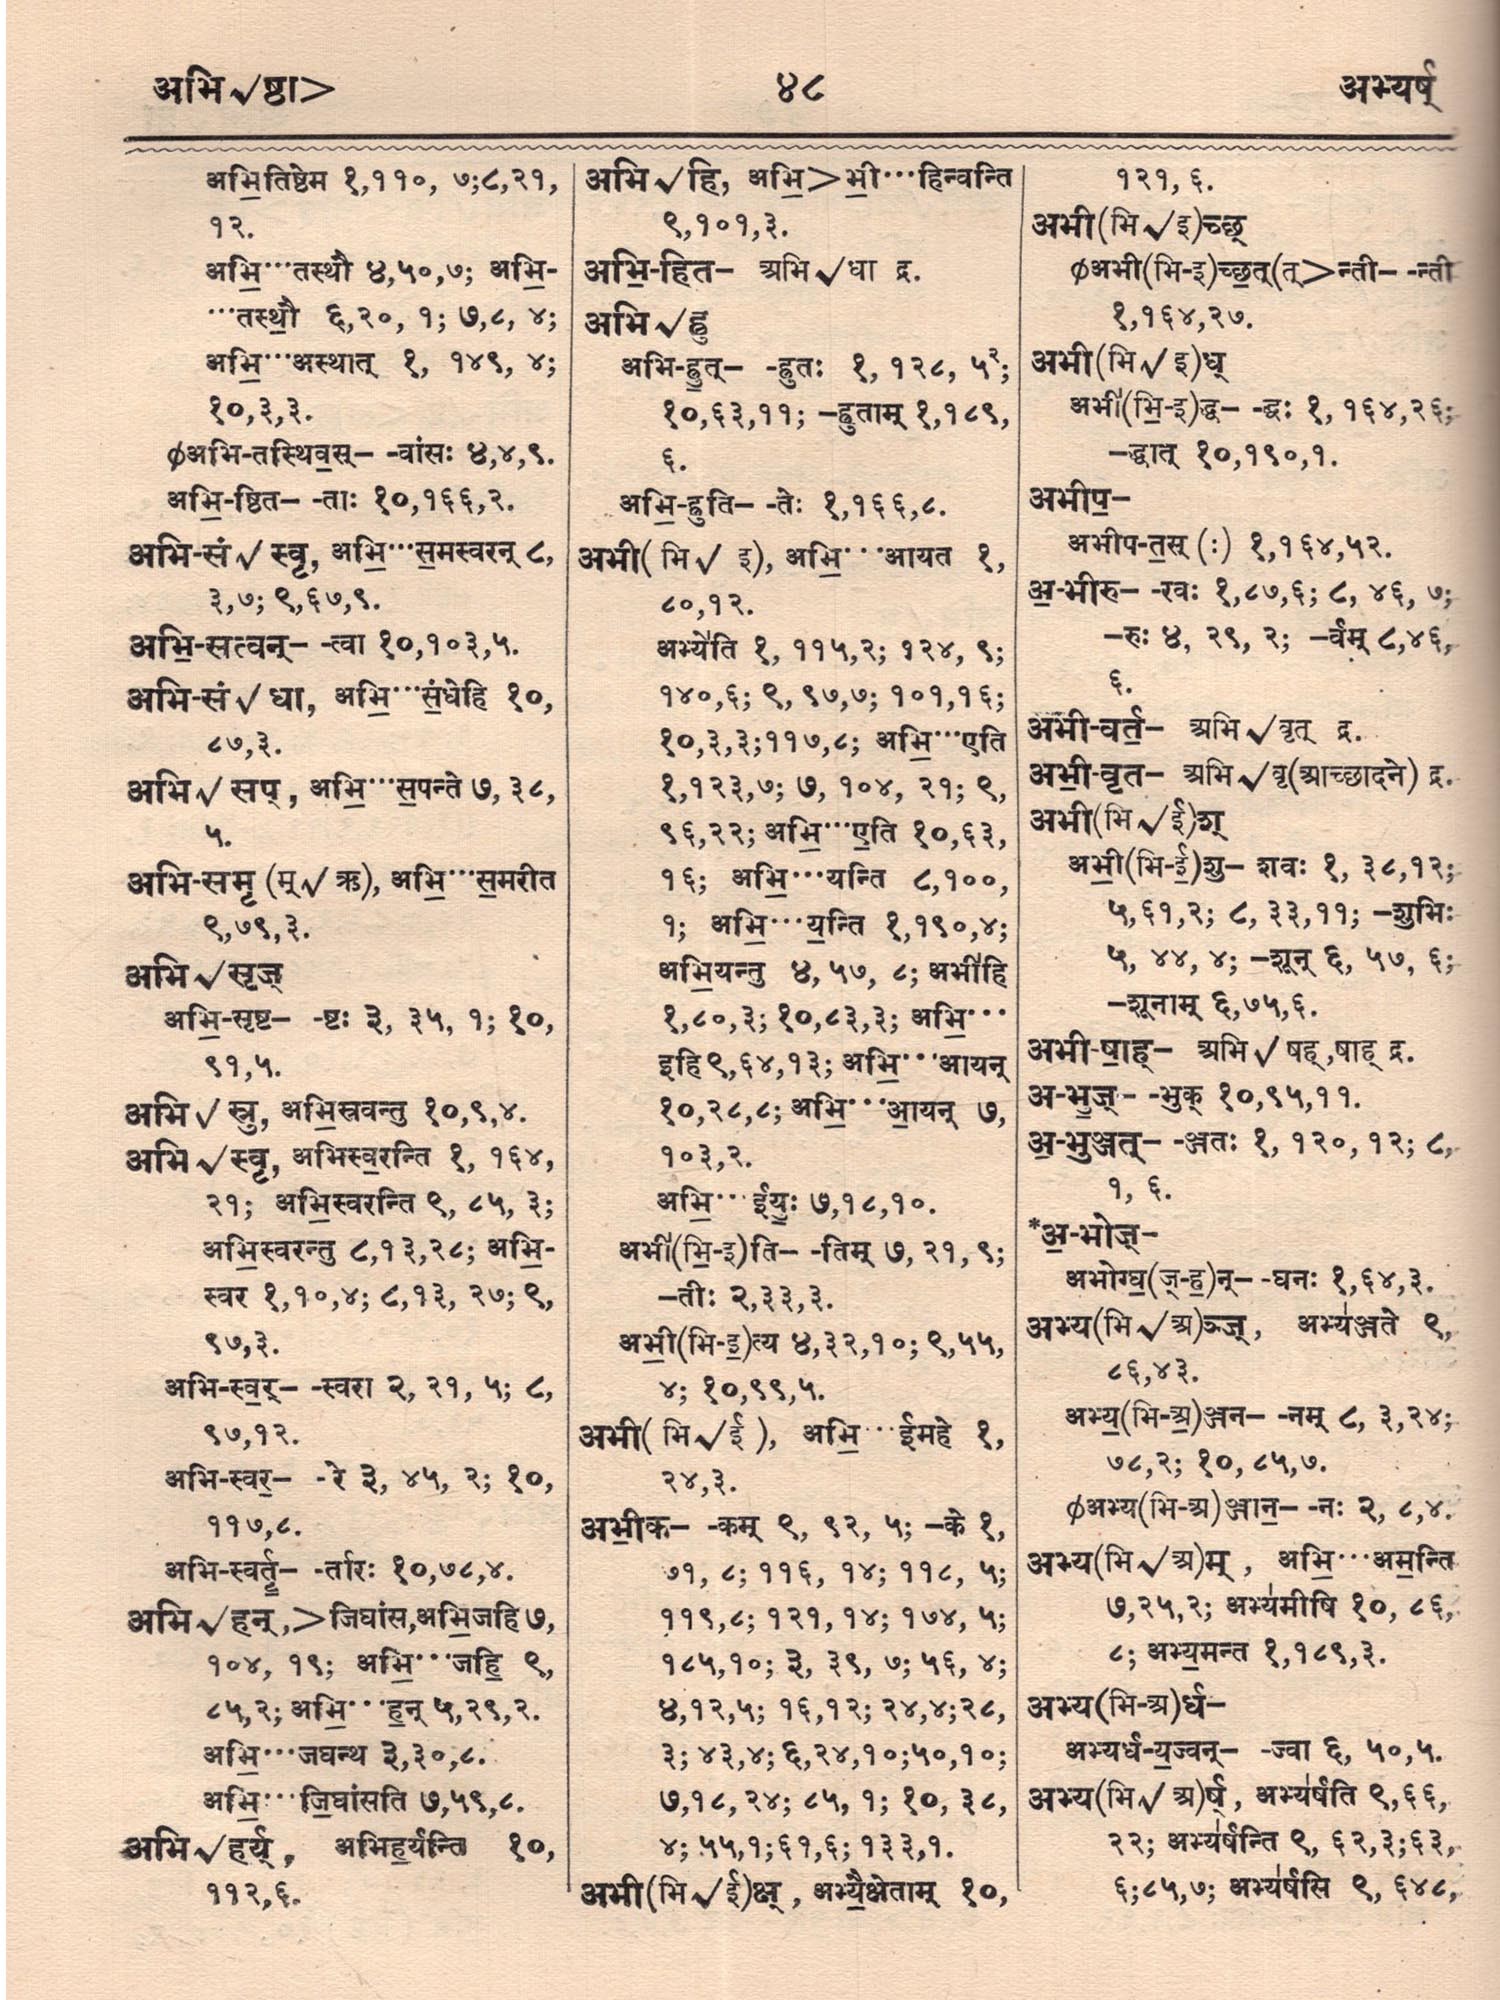 अभि√ष्ठा>
४८
अभ्यर्ष्
अभि॒तिष्ठेम १,११०, ७;८,२१,
१२.
अभि॒···तस्थौ ४,५०,७; अभि॒-
···तस्थौ॒ ६,२०, १; ७,८, ४;
अभि॒···अस्थात् १, १४९, ४;
१०,३,३.
ϕअभि-तस्थिव॒स्– -वांसः ४,४,९.
अभि॒-ष्ठित– -ताः १०,१६६,२.
अभि-सं√ स्वृ, अभि॒···स॒मस्वरन् ८,
३,७; ९,६७,९.
अभि॒-सत्वन्– -त्वा १०,१०३,५.
अभि-सं√ धा, अभि॒···सं॒धेहि १०,
८७,३.
अभि√ सप्, अभि॒···स॒पन्ते ७, ३८,
५.
अभि-समृ (म्√ ऋ), अभि॒···स॒मरीत
९,७९,३.
अभि√सृज्
अभि॒-सृष्ट– -ष्टः ३, ३५, १; १०,
९१,५.
अभि√ स्रु, अभि॒स्रवन्तु १०,९,४.
अभि√स्वृ, अभिस्व॒रन्ति १, १६४,
२१; अभि॒स्वरन्ति ९, ८५, ३;
अभि॒स्वरन्तु ८,१३,२८; अभि॒-
स्वर १,१०,४; ८,१३, २७; ९,
९७,३.
अभि-स्व॒र्– -स्वरा २, २१, ५; ८,
९७,१२.
अभि-स्वर॒– -रे ३, ४५, २; १०,
११७,८.
अभि-स्वर्तृ॒– -र्तारः १०,७८,४.
अभि√हन्,>जिघांस,अभि॒जहि ७,
१०४, १९; अभि॒···जहि॒ ९,
८५,२; अभि॒···ह॒न् ५,२९,२.
अभि॒···जघन्थ ३,३०,८.
अभि॒···जि॒घांसति ७,५९,८.
अभि√हर्य्, अभिह॒र्यन्ति १०,
११२,६.
अभि√हि, अभि॒>भी॒···हिन्वन्ति
९,१०१,३.
अभि॒-हित– अभि√धा द्र.
अभि√ह्रु
अभि-ह्रु॒त्– -ह्रुतः १, १२८, ५²;
१०,६३,११; –ह्रुताम् १,१८९,
६.
अभि॒-ह्रुति– -तेः १,१६६,८.
अभी( भि√ इ), अभि॒···आयत १,
८०,१२.
अभ्ये॑ति १, ११५,२; १२४, ९;
१४०,६; ९, ९७,७; १०१,१६;
१०,३,३;११७,८; अभि॒···एति
१,१२३,७; ७, १०४, २१; ९,
९६,२२; अभि॒···ए॒ति १०,६३,
१६; अभि॒···यन्ति ८,१००,
१; अभि॒···य॒न्ति १,१९०,४;
अभि॒यन्तु ४, ५७, ८; अभी॑हि
१,८०,३; १०,८३,३; अभि॒···
इहि ९,६४,१३; अभि॒···आयन्
१०,२८,८; अभि॒···आ॒यन् ७,
१०३,२.
अभि॒···ईयुः॒ ७,१८,१०.
अभी॑(भि॒-इ)ति– -तिम् ७, २१, ९;
–तीः २,३३,३.
अभी॒(भि-इ॒)त्य ४,३२,१०; ९,५५,
४; १०,९९,५.
अभी( भि√ई ), अभि॒···ईमहे १,
२४,३.
अभी॒क– -कम् ९, ९२, ५; –के १,
७१, ८; ११६, १४; ११८, ५;
११९,८; १२१, १४; १७४, ५;
१८५,१०; ३, ३९, ७; ५६, ४;
४,१२,५; १६,१२; २४,४;२८,
३; ४३,४; ६,२४,१०;५०,१०;
७,१८, २४; ८५, १; १०, ३८,
४; ५५,१;६१,६; १३३,१.
अभी(भि√ई)क्ष्, अभ्यै॒क्षेताम् १०,
१२१, ६.
अभी(भि√इ)च्छ्
ϕअभी(भि-इ)च्छ॒त्(त्>न्ती– -न्ती
१,१६४,२७.
अभी(भि√इ)ध्
अभी॑(भि॒-इ)द्ध– -द्धः १, १६४,२६;
–द्धात् १०,१९०,१.
अभीप॒–
अभीप-त॒स् (:) १,१६४,५२.
अ॒-भीरु– -रवः १,८७,६; ८, ४६, ७;
–रुः ४, २९, २; –र्वम् ८,४६,
६.
अभी-वर्त॒– अभि√वृत् द्र.
अभी॒-वृत– अभि√वृ(आच्छादने) द्र.
अभी(भि√ई)श्
अभी॒(भि-ई॒)शु– शवः १, ३८,१२;
५,६१,२; ८, ३३,११; –शुभिः
५, ४४, ४; –शून् ६, ५७, ६;
–शूनाम् ६,७५,६.
अभी-षा॒ह्– अभि√षह्,षाह् द्र.
अ-भु॒ज्– -भुक् १०,९५,११.
अ॒-भुञ्जत्– -ञ्जतः १, १२०, १२; ८,
१, ६.
*अ॒-भोज्–
अभोग्घ॒(ज्-ह॒)न्– -घनः १,६४,३.
अभ्य(भि√अ)ञ्ज्, अभ्य॑ञ्जते ९,
८६,४३.
अभ्य॒(भि-अ॒)ञ्जन– -नम् ८, ३,२४;
७८,२; १०, ८५,७.
ϕअभ्य(भि-अ)ञ्जान॒– -नः २, ८,४.
अभ्य(भि√अ)म्, अभि॒···अम॒न्ति
७,२५,२; अभ्य॑मीषि १०, ८६,
८; अभ्य॒मन्त १,१८९,३.
अभ्य(भि-अ)र्ध–
अभ्यर्ध-य॒ज्वन्– -ज्वा ६, ५०,५.
अभ्य(भि√ अ)र्ष्, अभ्य॑र्षति ९,६६,
२२; अभ्य॑र्षन्ति ९, ६२,३;६३,
६;८५,७; अभ्य॑र्षसि ९, ६४८,